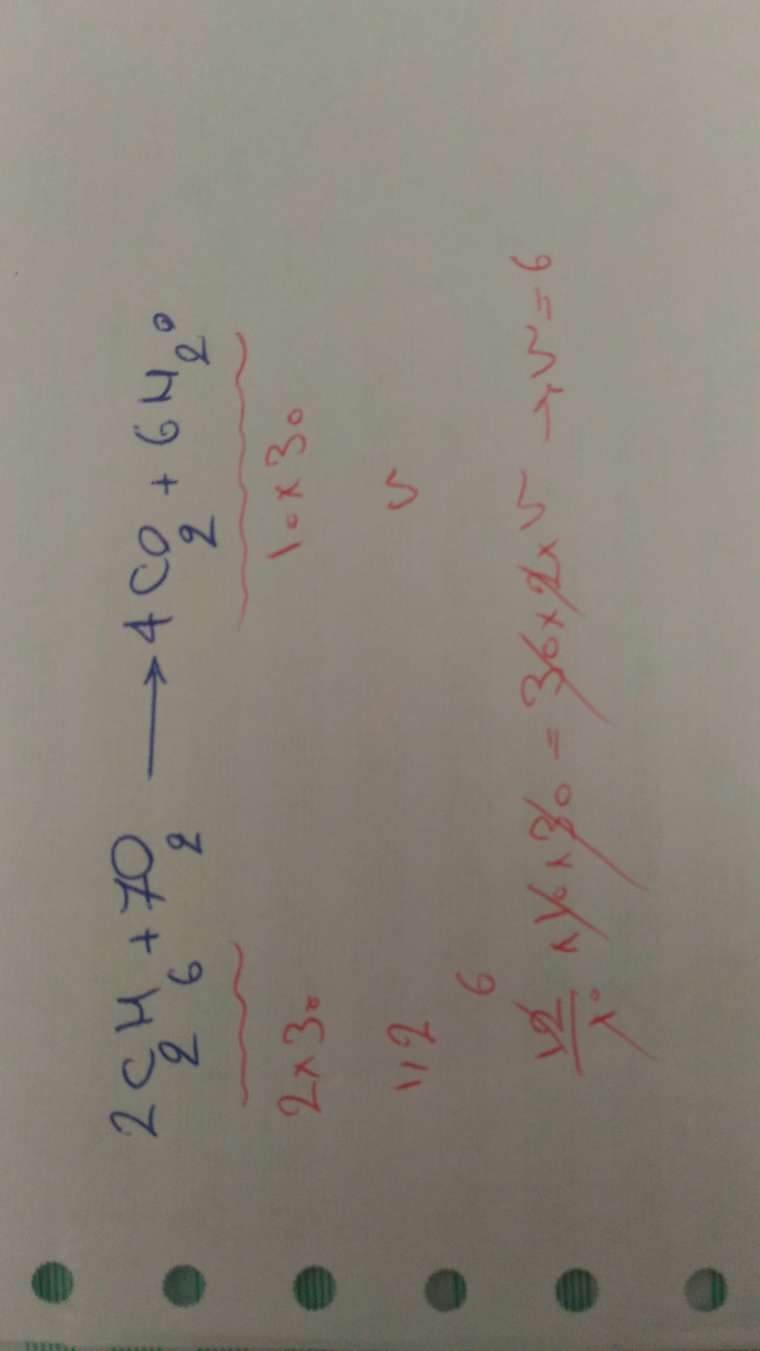 2C2H6 + 7O2 → 4CO2 + 6H2O
2×30 10×30
1,2 V
6
12/10 × 10 × 30 = 30 × 2 × V → V = 6